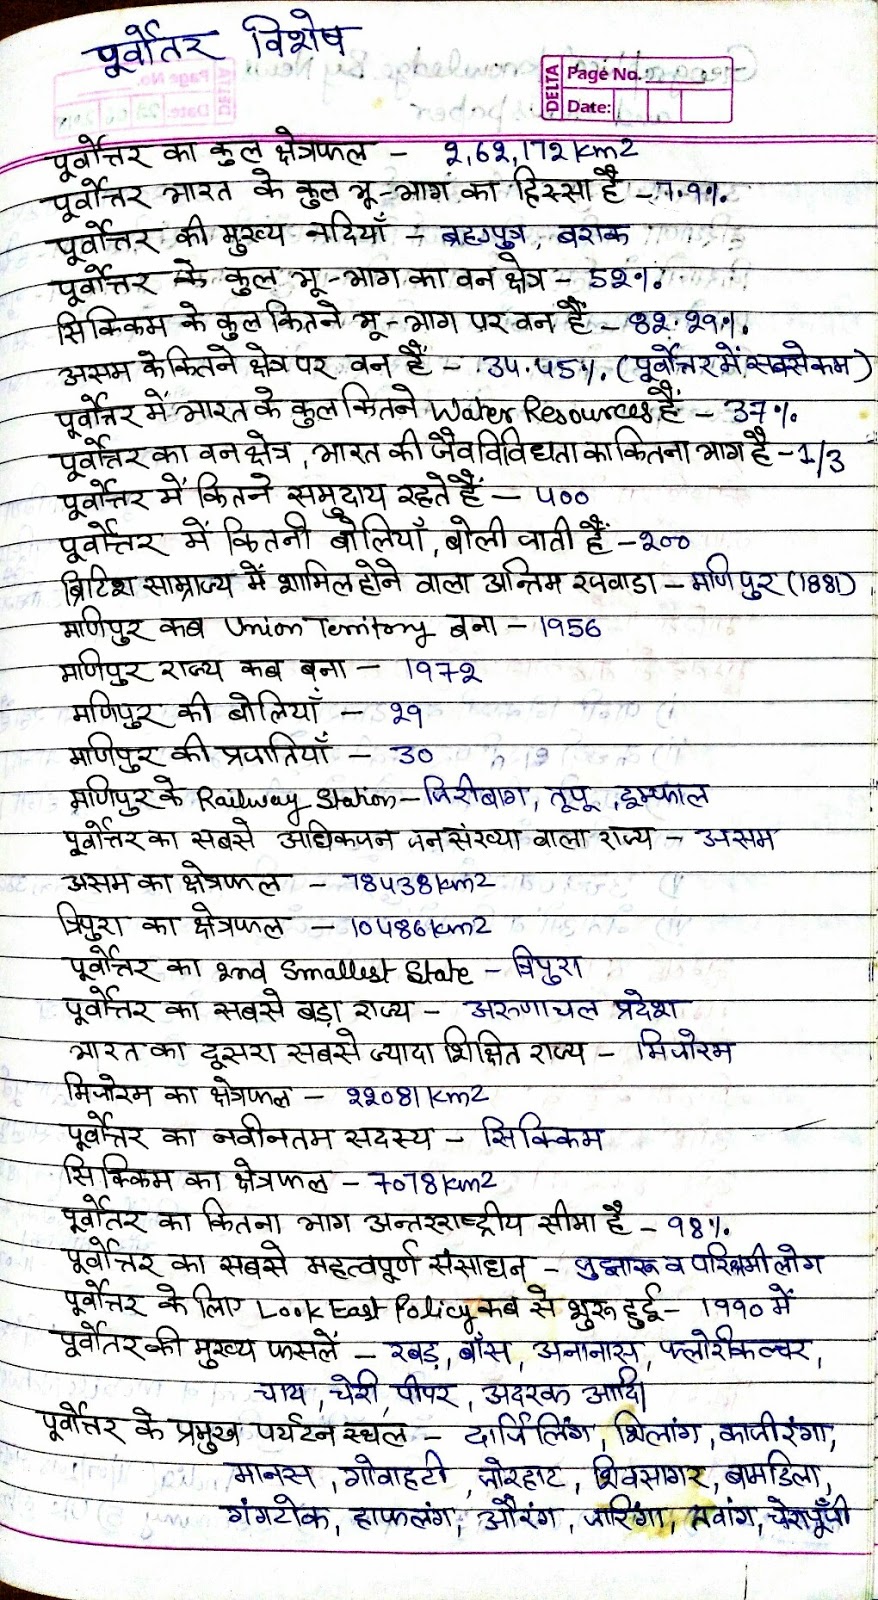 पूर्वोतर विशेष
DELTA
Page No.
Date:
पूर्वोत्तर का कुल क्षेत्रफल - २,6२,17२ km2
पूर्वोत्तर भारत के कुल भू-भाग का हिस्सा है - 7.9%
पूर्वोत्तर की मुख्य नदियाँ - ब्रह्मपुत्र, बराक
पूर्वोत्तर के कुल भू-भाग का वन क्षेत्र - 5२%
सिक्किम के कुल कितने भू-भाग पर वन हैं - 8२.२9%
असम के कितने क्षेत्र पर वन हैं - 34.45% (पूर्वोत्तर में सबसे कम)
पूर्वोत्तर में भारत के कुल कितने Water Resources हैं - 37%
पूर्वोत्तर का वन क्षेत्र, भारत की जैवविविधता का कितना भाग है - 1/3
पूर्वोत्तर में कितने समुदाय रहते हैं - ५००
पूर्वोत्तर में कितनी बोलियाँ, बोली जाती हैं - २००
ब्रिटिश साम्राज्य में शामिल होने वाला अन्तिम रजवाडा - मणिपुर (1881)
मणिपुर कब Union Territory बना - 1956
मणिपुर राज्य कब बना - 197२
मणिपुर की बोलियाँ - २9
मणिपुर की प्रजातियाँ - 30
मणिपुर के Railway Station - जिरीबाग, तूपू, इम्फाल
पूर्वोत्तर का सबसे अधिकजन जनसंख्या वाला राज्य - असम
असम का क्षेत्रफल - 78438 km2
त्रिपुरा का क्षेत्रफल - 10486 km2
पूर्वोत्तर का २nd Smallest State - त्रिपुरा
पूर्वोत्तर का सबसे बड़ा राज्य - अरुणाचल प्रदेश
भारत का दूसरा सबसे ज्यादा शिक्षित राज्य - मिजोरम
मिजोरम का क्षेत्रफल - २२081 km2
पूर्वोत्तर का नवीनतम सदस्य - सिक्किम
सिक्किम का क्षेत्रफल - 7078 km2
पूर्वोतर का कितना भाग अन्तरराष्ट्रीय सीमा है - 98%
पूर्वोत्तर का सबसे महत्वपूर्ण संसाधन - जुझारू व परिश्रमी लोग
पूर्वोत्तर के लिए Look East Policy कब से शुरू हुई - 1990 में
पूर्वोतर की मुख्य फसलें - रबड़, बाँस, अनानास, फ्लोरीकल्चर,
चाय, चेरी, पीपर, अदरक आदि।
पूर्वोत्तर के प्रमुख पर्यटन स्थल - दार्जिलिंग, शिलांग, काजीरंगा,
मानस, गोवाहटी, जोरहाट, शिवसागर, बामडिला,
गंगटोक, हाफलंग, औरंग, जारिंगा, तवांग, चेरापूँजी